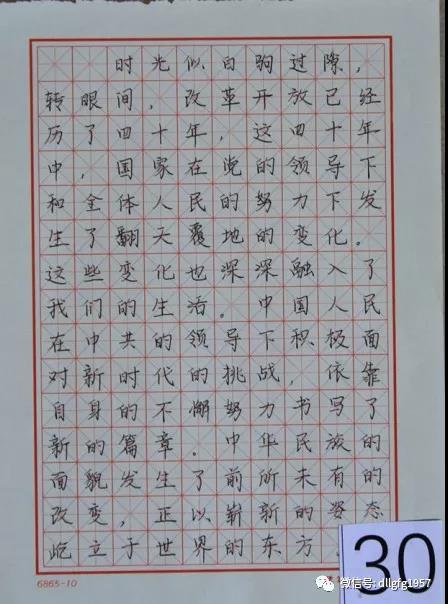 时光似白驹过隙，
转眼间，改革开放已经
历了四十年，这四十年
中，国家在党的领导下
和全体人民的努力下发
生了翻天覆地的变化。
这些变化也深深融入了
我们的生活。中国人民
在中共的领导下积极面
对新时代的挑战，依靠
自身的不懈努力书写了
新的篇章。中华民族的
面貌发生了前所未有的
改变，正以崭新的姿态
屹立于世界的东方
6865-10
30
微信号: dllgfg1957